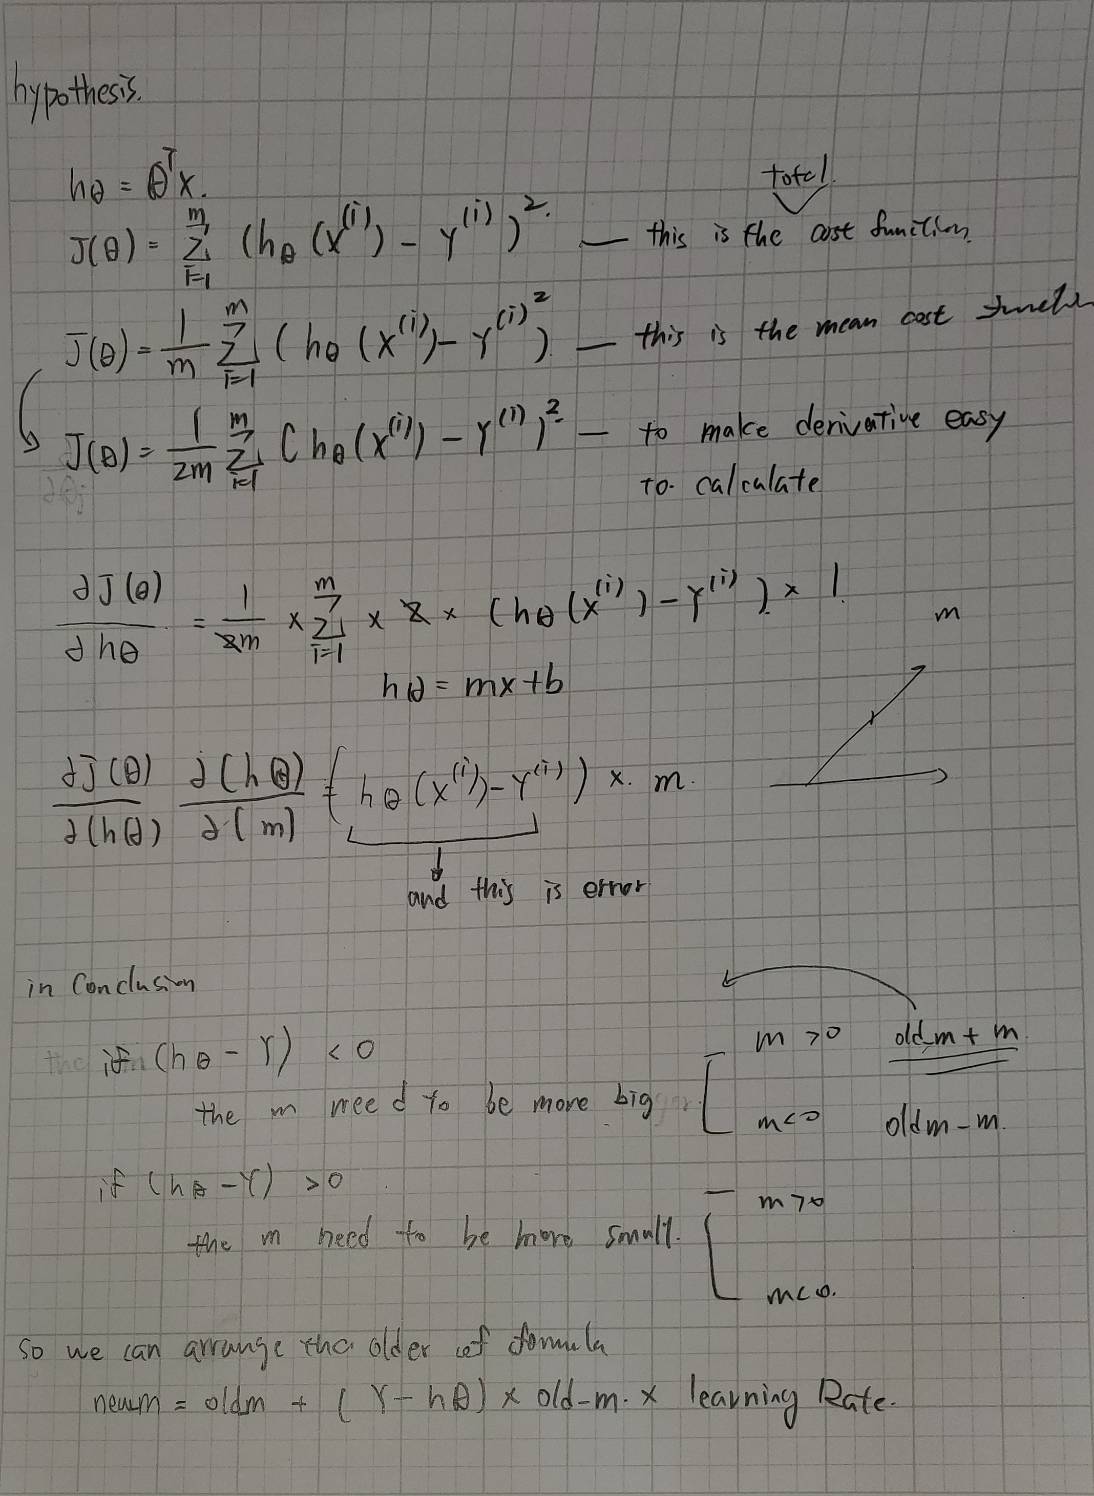 hypothesis.
hθ = θᵀx.
total
J(θ) = Σ_{i=1}^{m} (hθ(x⁽ⁱ⁾) − y⁽ⁱ⁾)². — this is the cost function.
J(θ) = 1/m Σ_{i=1}^{m} (hθ(x⁽ⁱ⁾) − Y⁽ⁱ⁾²) — this is the mean cost
J(θ) = 1/2m Σ_{i=1}^{m} (hθ(x⁽ⁱ⁾) − Y⁽ⁱ⁾)² — to make derivative easy
to calculate
∂J(θ)/∂hθ = 1/2m × Σ_{i=1}^{m} × 2 × (hθ(x⁽ⁱ⁾) − Y⁽ⁱ⁾) × 1.
m
hθ = mx + b
∂J(θ)/∂(hθ) ∂(hθ)/∂(m) = (hθ(x⁽ⁱ⁾) − Y⁽ⁱ⁾) × m.
and this is error
in conclusion
if (hθ − Y) < 0
m > 0 old_m + m.
the m need to be more big
m < 0 oldm − m.
if (hθ − Y) > 0
m > 0
the m need to be more small.
m < 0.
so we can arrange the older of formula
newm = oldm + (Y − hθ) × old−m. × learning Rate.